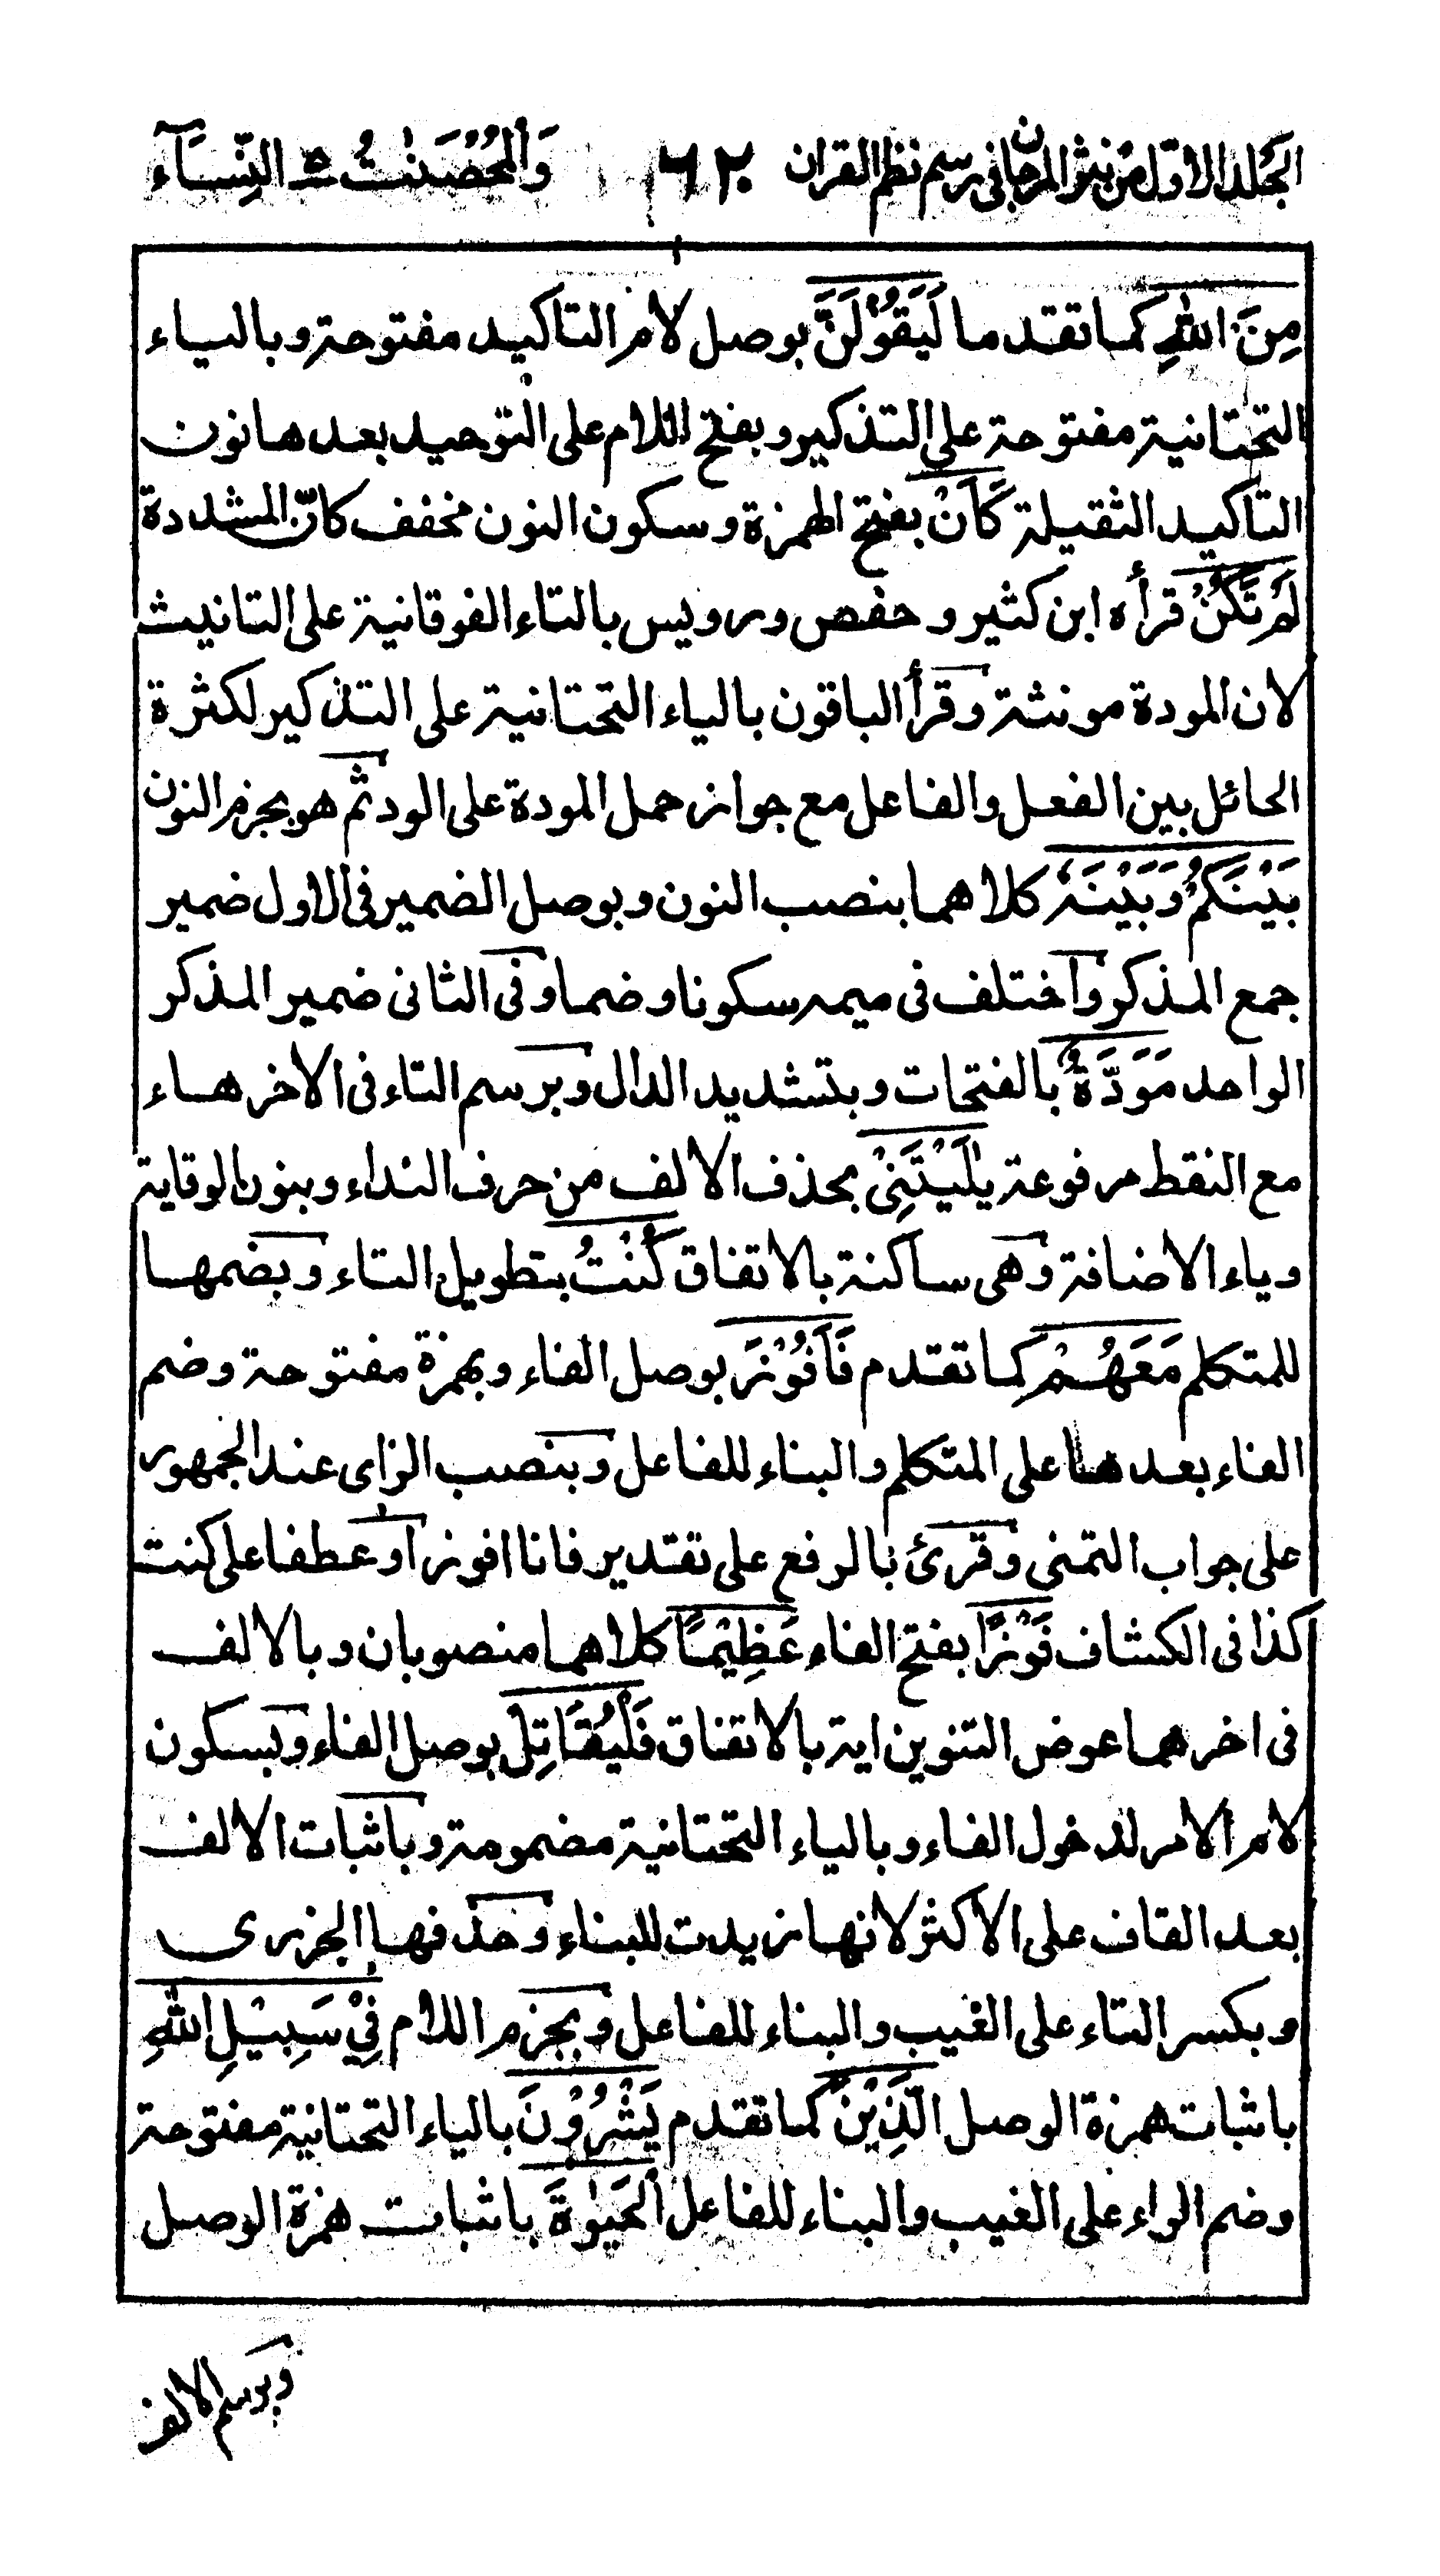 الجلد الاول من نثر المرجان فى رسم نظم القران ٦٢٠ وَالْمُحْصَنٰتُ ٥ النِّسَآء
مِنَ اللّٰهِ كما تقدما لَيَقُوْلَنَّ بوصل لام التاكيد مفتوحة وبالياء
التحتانية مفتوحة على التذكير وبفتح اللام على التوحيد بعدها نون
التاكيد الثقيلة كَاَنْ بفتح الهمزة وسكون النون مخفف كانّ المشددة
لَمْ تَكُنْ قرأه ابن كثير و حفص ورويس بالتاء الفوقانية على التانيث
لان المودة مونثة وقرأ الباقون بالياء التحتانية على التذكير لكثرة
الحائل بين الفعل والفاعل مع جواز حمل المودة على الود ثم هو بجزم النون
بَيْنَكُمْ وَبَيْنَهٗ كلاهما بنصب النون وبوصل الضمير فى الاول ضمير
جمع المذكر واختلف فى ميمه سكونا وضما وفى الثانى ضمير المذكر
الواحد مَوَدَّةٌ بالفتحات وبتشديد الدال وبرسم التاء فى الاخر هاء
مع النقط مرفوعة يٰلَيْتَنِىْ بحذف الالف من حرف النداء وبنون الوقاية
وياء الاضافة وهى ساكنة بالاتفاق كُنْتُ بتطويل التاء وبضمها
للمتكلم مَعَهُمْ كما تقدم فَاَفُوْزَ بوصل الفاء وبهمزة مفتوحة وضم
الفاء بعدها على المتكلم والبناء للفاعل وبنصب الزاى عند الجمهور
على جواب التمنى وقرئ بالرفع على تقدير فانا افوز او عطفا على كنت
كذا فى الكشاف فَوْزًا بفتح الفاء عَظِيْمًا كلاهما منصوبان وبالالف
فى اخرهما عوض التنوين اية بالاتفاق فَلْيُقَاتِلْ بوصل الفاء وبسكون
لام الامر لدخول الفاء وبالياء التحتانية مضمومة وباثبات الالف
بعد القاف على الاكثر لانها زيدت للبناء وحذفها الجزرى
وبكسر التاء على الغيب والبناء للفاعل وبجزم اللام فِىْ سَبِيْلِ اللّٰهِ
باثبات همزة الوصل الَّذِيْنَ كما تقدم يَشْرُوْنَ بالياء التحتانية مفتوحة
وضم الراء على الغيب والبناء للفاعل الْحَيٰوةَ باثبات همزة الوصل
وبرسم الالف